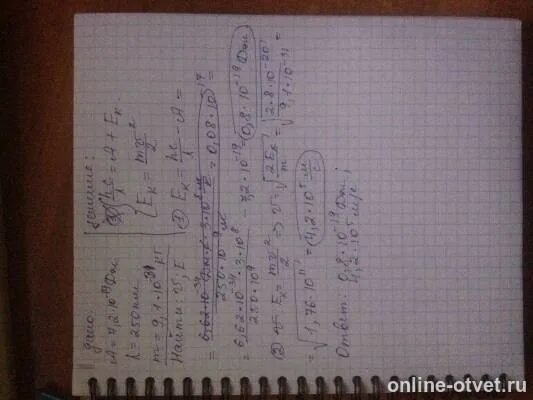 Дано:
A = 7,2·10⁻¹⁹ Дж
λ = 250 нм
m = 9,1·10⁻³¹ кг
Найти: υ, E
Решение:
hc/λ = A + Eₖ
Eₖ = mυ²/2
① Eₖ = hc/λ − A =
= 6,62·10⁻³⁴ Дж·с·3·10⁸ м/с / 250·10⁻⁹ м
= 0,08·10⁻¹⁷ =
= 6,62·10⁻³⁴·3·10⁸ / 250·10⁹ − 7,2·10⁻¹⁹ = 0,8·10⁻¹⁹ Дж
② Eₖ = mυ²/2 ⇒ υ = √(2Eₖ/m) = √(2·8·10⁻²⁰ / 9,1·10⁻³¹) =
= √(1,76·10¹¹) = 4,2·10⁵ м/с
Ответ: 0,8·10⁻¹⁹ Дж;
4,2·10⁵ м/с
online-otvet.ru